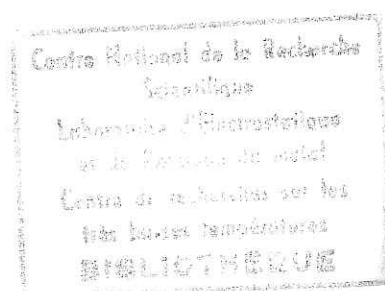 Centre National de la Recherche
Scientifique
Laboratoire d'Electrostatique
et de Physique du métal
Centre de recherches sur les
très basses températures
BIBLIOTHEQUE